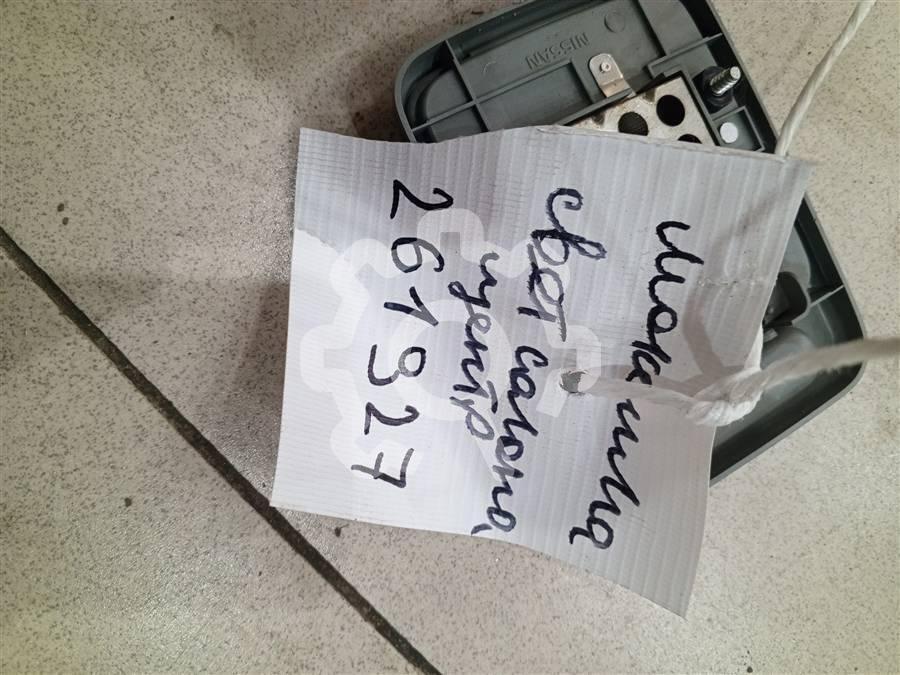 Мокашиа
свет салона
центр
261927
NISSAN